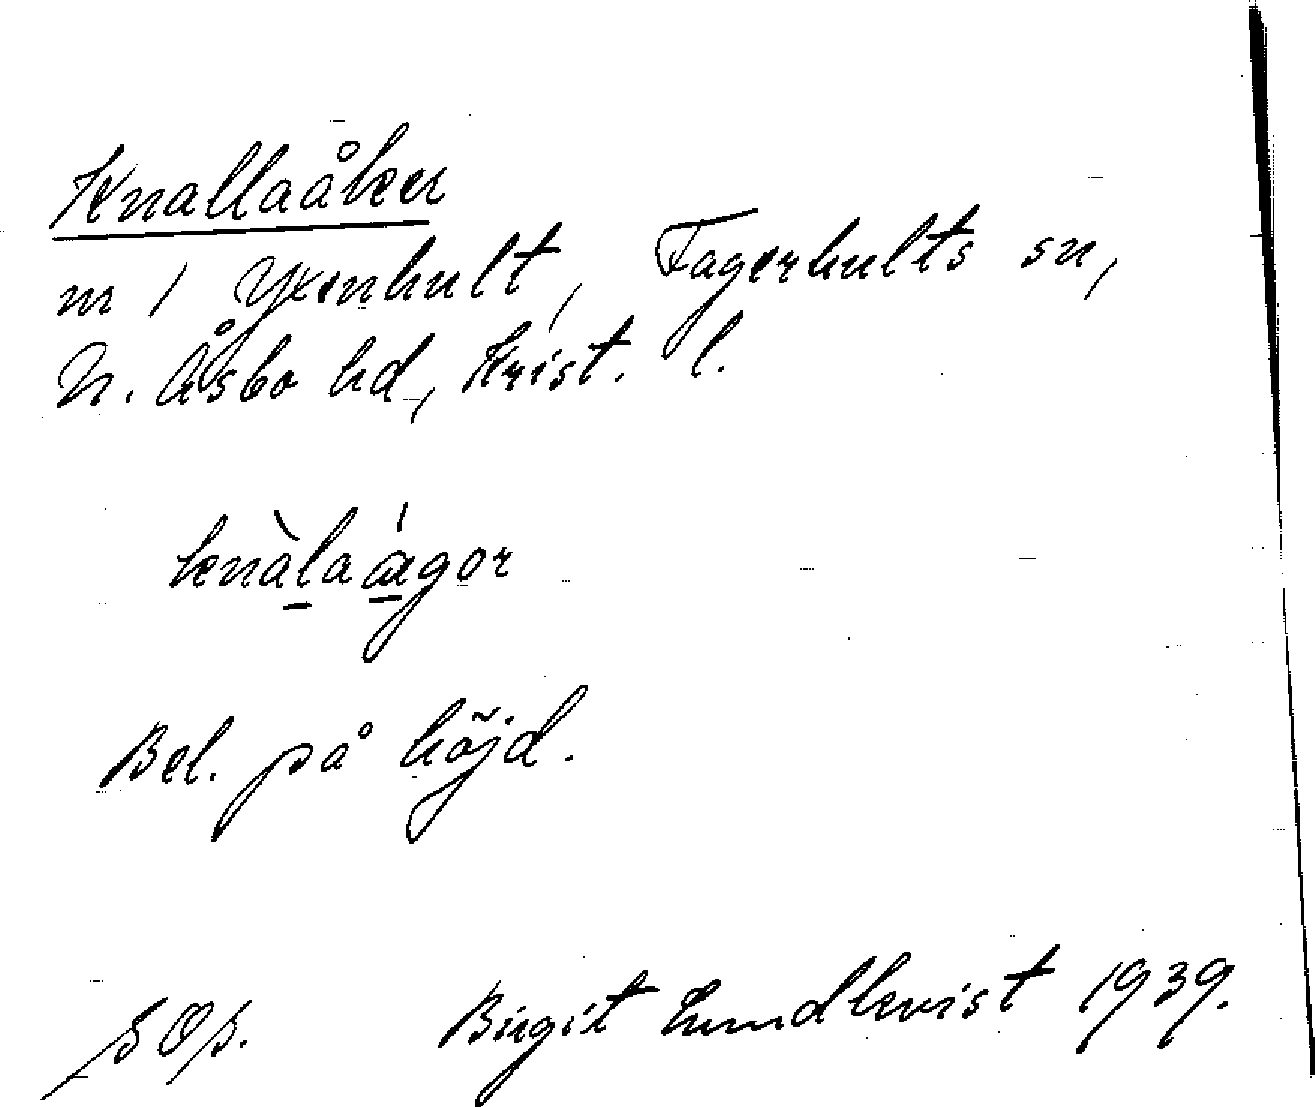 Knallaåker
m / Yxenhult, Fagerhults sn,
N. Åsbo hd, Krist. l.
knàlaágor
Bel. på höjd.
Birgit Lundkvist 1939.